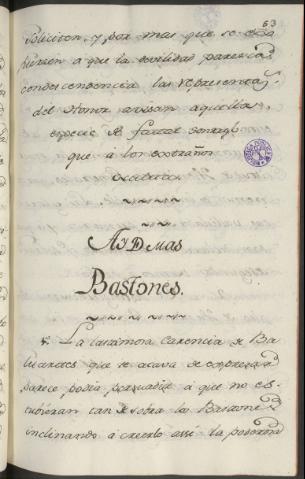 53
soliciten, y por mas que se
que a la
condescendencia las representaz.s
del Honor avisan aquella
especie de fatal
que a los extraños
~~~
~~
AIDMAS
BASTONES.
~~~~~
La lastimosa Carencia de Ba
luartes que se acava de expresar
parece podia persuadir a que no es
tubieran tan de sobra los Bastones
inclinando a creerlo assi la